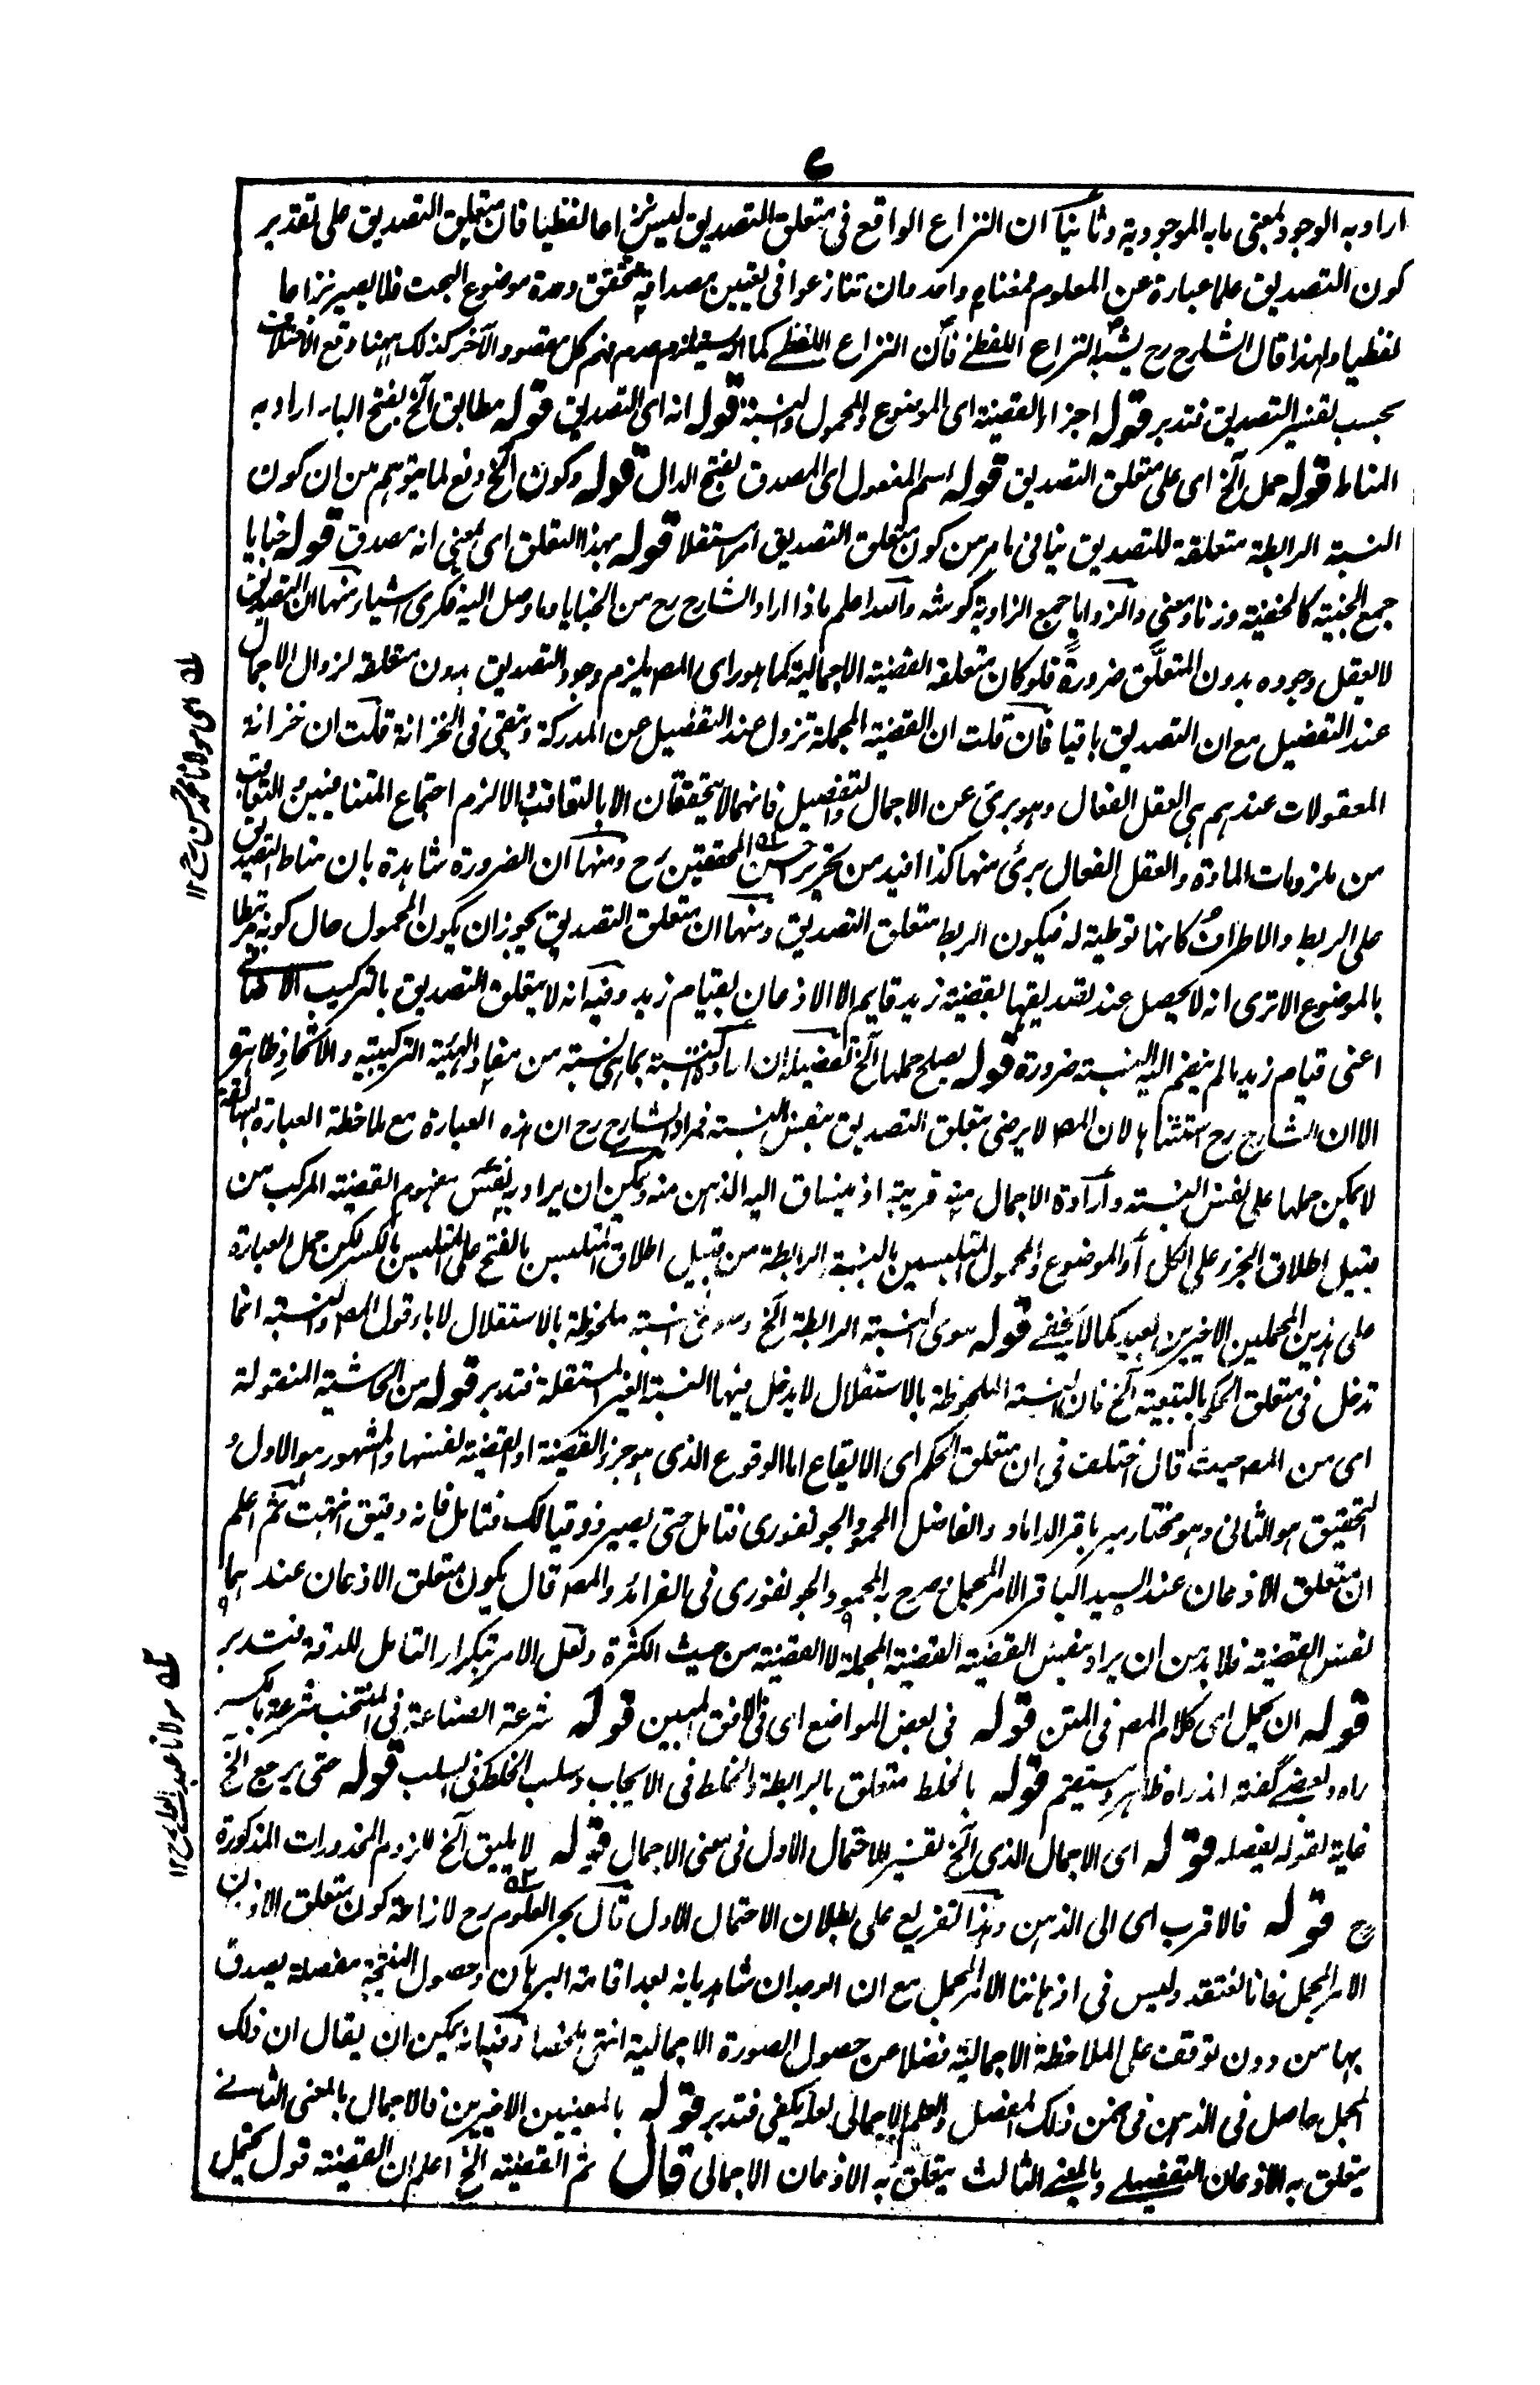 ٧
اراد به الوجود بمعنى ما به الموجودية وثانيا ان النزاع الواقع فى متعلق التصديق ليس نزاعا لفظيا فان متعلق التصديق على تقدير
كون التصديق علما عبارة عن المعلوم فمعناه واحد وان تنازعوا فى تعيين مصداقه فتحقق وحدة موضوع البحث فلا يصير نزاعا
لفظيا ولهذا قال الشارح رح يشبه النزاع اللفظى فكان النزاع اللفظى كما انه يستلزم عدم فهم كل مقصود الآخر كذلك ههنا وقع الاختلاف
بحسب تفسير التصديق فتدبر قوله اجزاء القضية اى الموضوع والمحمول والنسبة قوله انه اى التصديق قوله مطابق الخ بفتح الباء اراد به
المناط قوله حمل الخ اى على متعلق التصديق قوله اسم المفعول اى المصدق بفتح الدال قوله وكون الخ دفع لما يتوهم من ان كون
النسبة الرابطة متعلقة للتصديق ينافى ما مر من كون متعلق التصديق امرا مستقلا قوله بهذا التعلق اى بمعنى انه مصدق قوله خبايا
جمع الخبية كالخفية وزنا ومعنى والزوايا جمع الزاوية گوشه والله اعلم ماذا اراد الشارح رح من الخبايا وما وصل اليه فكرى اشياء منها ان التصديق
لا يعقل وجوده بدون المتعلق ضرورة فلو كان متعلقه القضية الاجمالية كما هو راى المصـ يلزم وجود التصديق بدون متعلقه لزوال الاجمال
عند التفصيل مع ان التصديق باقيا فان قلت ان القضية المجملة تزول عند التفصيل عن المدركة وتبقى فى الخزانة قلت ان خزانة
المعقولات عندهم هى العقل الفعال وهو برئ عن الاجمال والتفصيل فانهما لا يتحققان الا بالتعاقب والا لزم اجتماع المتنافيين والتعاقب
من ملزومات المادة والعقل الفعال برئ منها كذا افيد من تحرير احسن المحققين رح ومنها ان الضرورة شاهدة بان مناط التصديق
على الربط والاطراف كانها توطية له فيكون الربط متعلق التصديق ومنها ان متعلق التصديق يجوز ان يكون المحمول حال كونه مرتبطا
بالموضوع الا ترى انه لا يحصل عند تصديقها بقضية زيد قايم الا الاذعان بقيام زيد وفيه انه لا يتعلق التصديق بالتركيب الاضافى
اعنى قيام زيد ما لم ينضم اليه النسبة ضرورة قوله يصلح حملها الخ تفصيله ان ارادة النسبة بما هى نسبة من مفاد الهيئة التركيبية والاتحاد ظاهرة
الا ان الشارح رح استثناها لان المصـ لا يرضى بتعلق التصديق بنفس النسبة فمراد الشارح رح ان هذه العبارة مع ملاحظة العبارة السابقة
لا يمكن حملها على نفس النسبة وارادة الاجمال منه قريبة اذ ينساق اليه الذهن منه ويمكن ان يراد به نفس مفهوم القضية المركب من
قبيل اطلاق الجزء على الكل او الموضوع والمحمول المتلبسين بالنسبة الرابطة من قبيل اطلاق المتلبس بالفتح على المتلبس بالكسر لكن حمل العبارة
على هذين المحملين الاخيرين بعيد كما لا يخفى قوله سوى النسبة الرابطة الخ وسوى نسبة ملحوظة بالاستقلال لاباء قول المصـ والنسبة انما
تدخل فى متعلق الحكم بالتبعية الخ فان النسبة الملحوظة بالاستقلال لا يدخل فيها النسبة الغير المستقلة فتدبر قوله من الحاشية المنقولة
اى من المصـ حيث قال اختلف فى ان متعلق الحكم اى الايقاع اما الوقوع الذى هو جزء القضية او القضية نفسها والمشهور هو الاول و
التحقيق هو الثانى وهو مختار مير باقر الداماد والفاضل المحمود الجونفورى فتامل حتى يصير ذوقيا لك فتامل فانه دقيق انتهت ثم اعلم
ان متعلق الاذعان عند السيد الباقر الامر المجمل صرح به المحمود الجونفورى فى الفرائد والمصـ قال يكون متعلق الاذعان عندهما
نفس القضية فلا بد من ان يراد بنفس القضية القضية المجملة لا القضية من حيث الكثرة ولعل الامر بتكرار التامل للدقة فتدبر
قوله ان يحمل اى كلام المصـ فى المتن قوله فى بعض المواضع اى فى الافق المبين قوله شرعة الصناعة فى المنتخب شرعة بالكسر
راه وبعضے گفته اند راه ظاهر ومستقيم قوله بالخلط متعلق بالرابطة والخلط فى الايجاب وسلب الخلط فى السلب قوله حتى يرجع الخ
غاية لقوله يفصله قوله اى الاجمال الذى الخ تفسير للاحتمال الاول فى معنى الاجمال قوله لا يليق الخ للزوم المحذورات المذكورة
ح قوله فالاقرب اى الى الذهن وهذا تفريع على بطلان الاحتمال الاول قال بحر العلوم رح لازاحة كون متعلق الاذعان
الامر المجمل فانا نعتقد وليس فى اذهاننا الامر المجمل مع ان الوجدان شاهد بانه بعد اقامة البرهان وحصول النتيجة مفصلة يصدق
بها من دون توقف على الملاحظة الاجمالية فضلا عن حصول الصورة الاجمالية انتهى ملخصا وفيه انه يمكن ان يقال ان ذلك
المجمل حاصل فى الذهن فى ضمن ذلك المفصل والعلم الاجمالى لعله يكفى فتدبر قوله بالمعنيين الاخيرين فالاجمال بالمعنى الثانى
يتعلق به الاذعان التفصيلى وبالمعنى الثالث يتعلق به الاذعان الاجمالى قال ثم القضية الخ اعلم ان القضية قول يحتمل
له اى مولانا محمد حسن رح ١٢
له مولانا عبد العلى رح ١٢